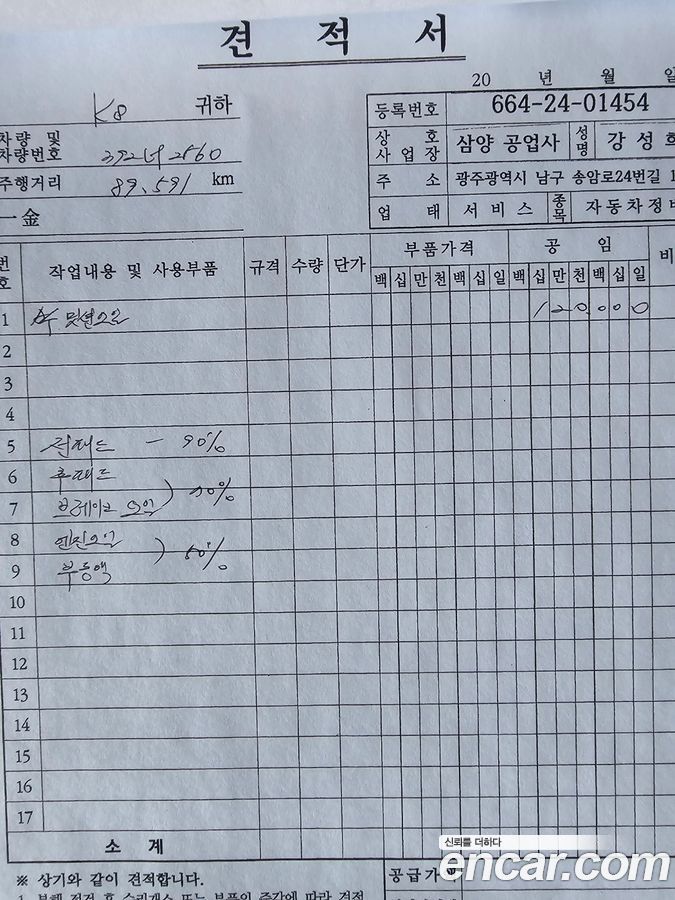 견 적 서
20 년 월 일
K8 귀하
등록번호 664-24-01454
차량 및
차량번호 392너2560
상 호
사 업 장 삼양 공업사 성명 강성
주행거리 89,591 km
주 소 광주광역시 남구 송암로24번길 1
一金
업 태 서비스 종목 자동차정비
번호 작업내용 및 사용부품 규격 수량 단가 부품가격 공 임 비
백 십 만 천 백 십 일 백 십 만 천 백 십 일
1 밋션오일 120.000
2
3
4
5 전패드 - 90%
6 후패드
7 브레이크 오일
8 엔진오일
9 부동액
10
11
12
13
14
15
16
17
소 계
※ 상기와 같이 견적합니다.
공급가액
신뢰를 더하다
encar.com